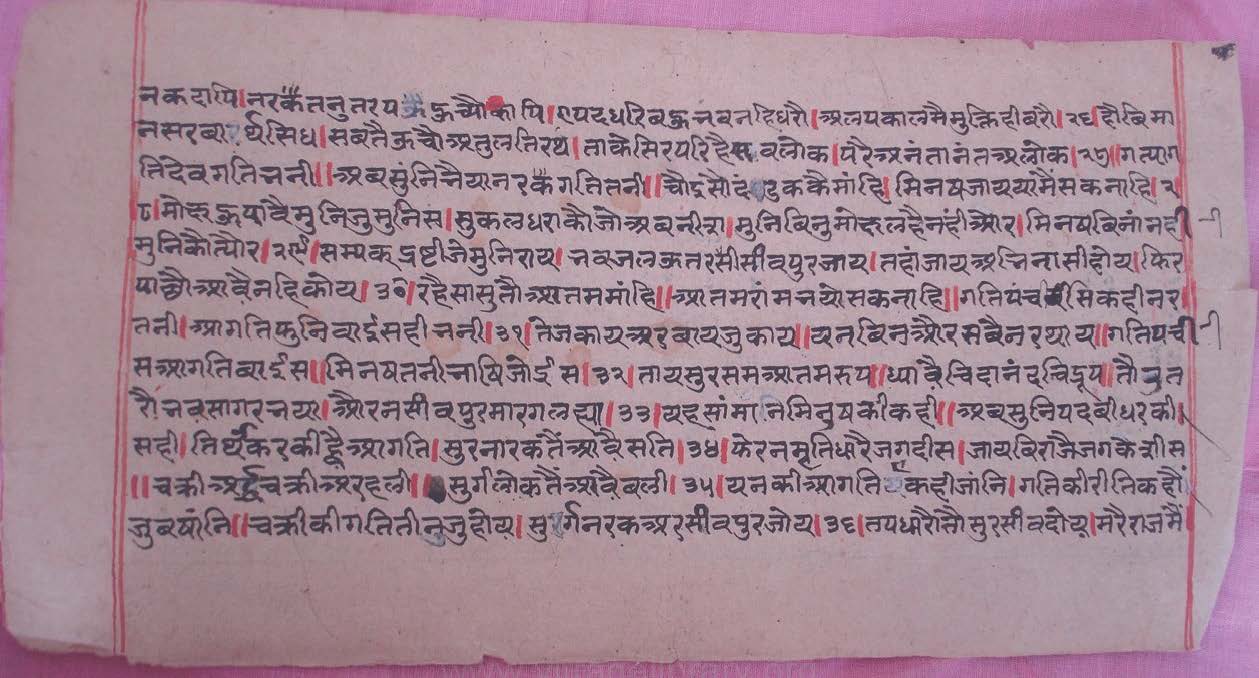 न कदापि।नरकै तनु तर प ऊ चौ कापि।ए पद धरि बऊ नव नहि धरौ।अलप काल मै मुक्ति ही वरौ।२६।है विमा
न सरवार्थसिध।सबतै ऊचौ अतुलतिरध।ताके सिर परि है सबलोक।परै अनंतानंत अलोक।२७॥गत्याग
ति देव गति जनी॥अब सुंनि चैया नरकै गति तनी॥चौइसौ दंडुक कै मांहि।मिनष जाय यामैं सक नाहि।२
८।मोह ऊ पावै मुनि जु सुनिस।सुकल धरा कौ जो अवनीस।मुनि बिनु मोह लहै नंही और।मिनष बिनां नही
मुनि कौ त्यौर।२९।सम्यक द्रष्टी जे मुनिराय।नवजल ऊतर सी सीवपुर जाय।तहां जाय अविनासी होय।फिरि
पाछौ आवै न हि कोय।३०।रहै सासुतौ आतम मांहि॥आतमरांम नयो सक नाहि॥गति पंचमि कही नर
तनी।आगति फुनि वाईस ही जनी।३१।तेजकाय अर वायजु काय।यन बिन और सबै नर थाय॥गति पची
स आगति वाईस॥मिनष तनी नाषि जोईस।३२।ता य सुर सम आतम रुप।ध्यावै चिदानंद चिद्रूप।तौ उत
रौ नवसागर नया।और न सीवपुर मारग लह्या।३३।यह सांमानि मिनुष की कही॥अब सुनि पदवीधर की।
सही।तिर्थंकर की द्वै आगति।सुर नारक तैं आवै सति।३४।फेर न मृति धारै जगदीस।जाय बिराजै जग कै सीस
॥चक्री अर्द्ध चक्री अर हली॥सुर्ग लोक तैं आवै बली।३५।यन की आगति कही जांनि।गति की रीति कहौं
जु वषांनि॥चक्री की गति तीनु जु होय।सुर्ग नरक अर सीवपुर जोय।३६।तप धारै तौ सुर सीव दोय।मरै राज मैं